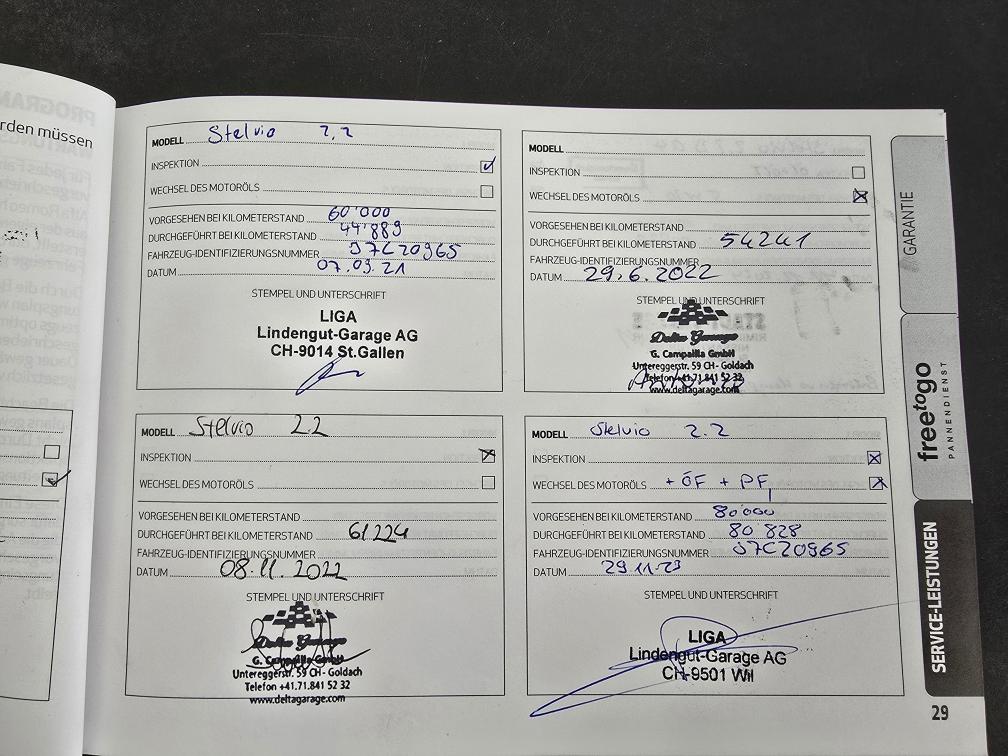 rden müssen
MODELL Stelvio 2.2
INSPEKTION
WECHSEL DES MOTORÖLS
VORGESEHEN BEI KILOMETERSTAND 60'000
DURCHGEFÜHRT BEI KILOMETERSTAND 44'889
FAHRZEUG-IDENTIFIZIERUNGSNUMMER J7C20965
DATUM 07.09.21
STEMPEL UND UNTERSCHRIFT
LIGA
Lindengut-Garage AG
CH-9014 St.Gallen
MODELL
INSPEKTION
WECHSEL DES MOTORÖLS
VORGESEHEN BEI KILOMETERSTAND
DURCHGEFÜHRT BEI KILOMETERSTAND 54241
FAHRZEUG-IDENTIFIZIERUNGSNUMMER
DATUM 29.6.2022
STEMPEL UND UNTERSCHRIFT
Delta Garage
G. Campailla GmbH
Untereggerstr. 59 CH - Goldach
Telefon +41.71.841 52 32
www.deltagarage.com
MODELL Stelvio 2.2
INSPEKTION
WECHSEL DES MOTORÖLS
VORGESEHEN BEI KILOMETERSTAND
DURCHGEFÜHRT BEI KILOMETERSTAND 61224
FAHRZEUG-IDENTIFIZIERUNGSNUMMER
DATUM 08.11.2022
STEMPEL UND UNTERSCHRIFT
Delta Garage
G. Campailla GmbH
Untereggerstr. 59 CH - Goldach
Telefon +41.71.841 52 32
www.deltagarage.com
MODELL Stelvio 2.2
INSPEKTION
WECHSEL DES MOTORÖLS + ÖF + PF
VORGESEHEN BEI KILOMETERSTAND 80'000
DURCHGEFÜHRT BEI KILOMETERSTAND 80 828
FAHRZEUG-IDENTIFIZIERUNGSNUMMER J7C20965
DATUM 29.11.23
STEMPEL UND UNTERSCHRIFT
LIGA
Lindengut-Garage AG
CH-9501 Wil
GARANTIE
freetogo
PANNENDIENST
SERVICE-LEISTUNGEN
29